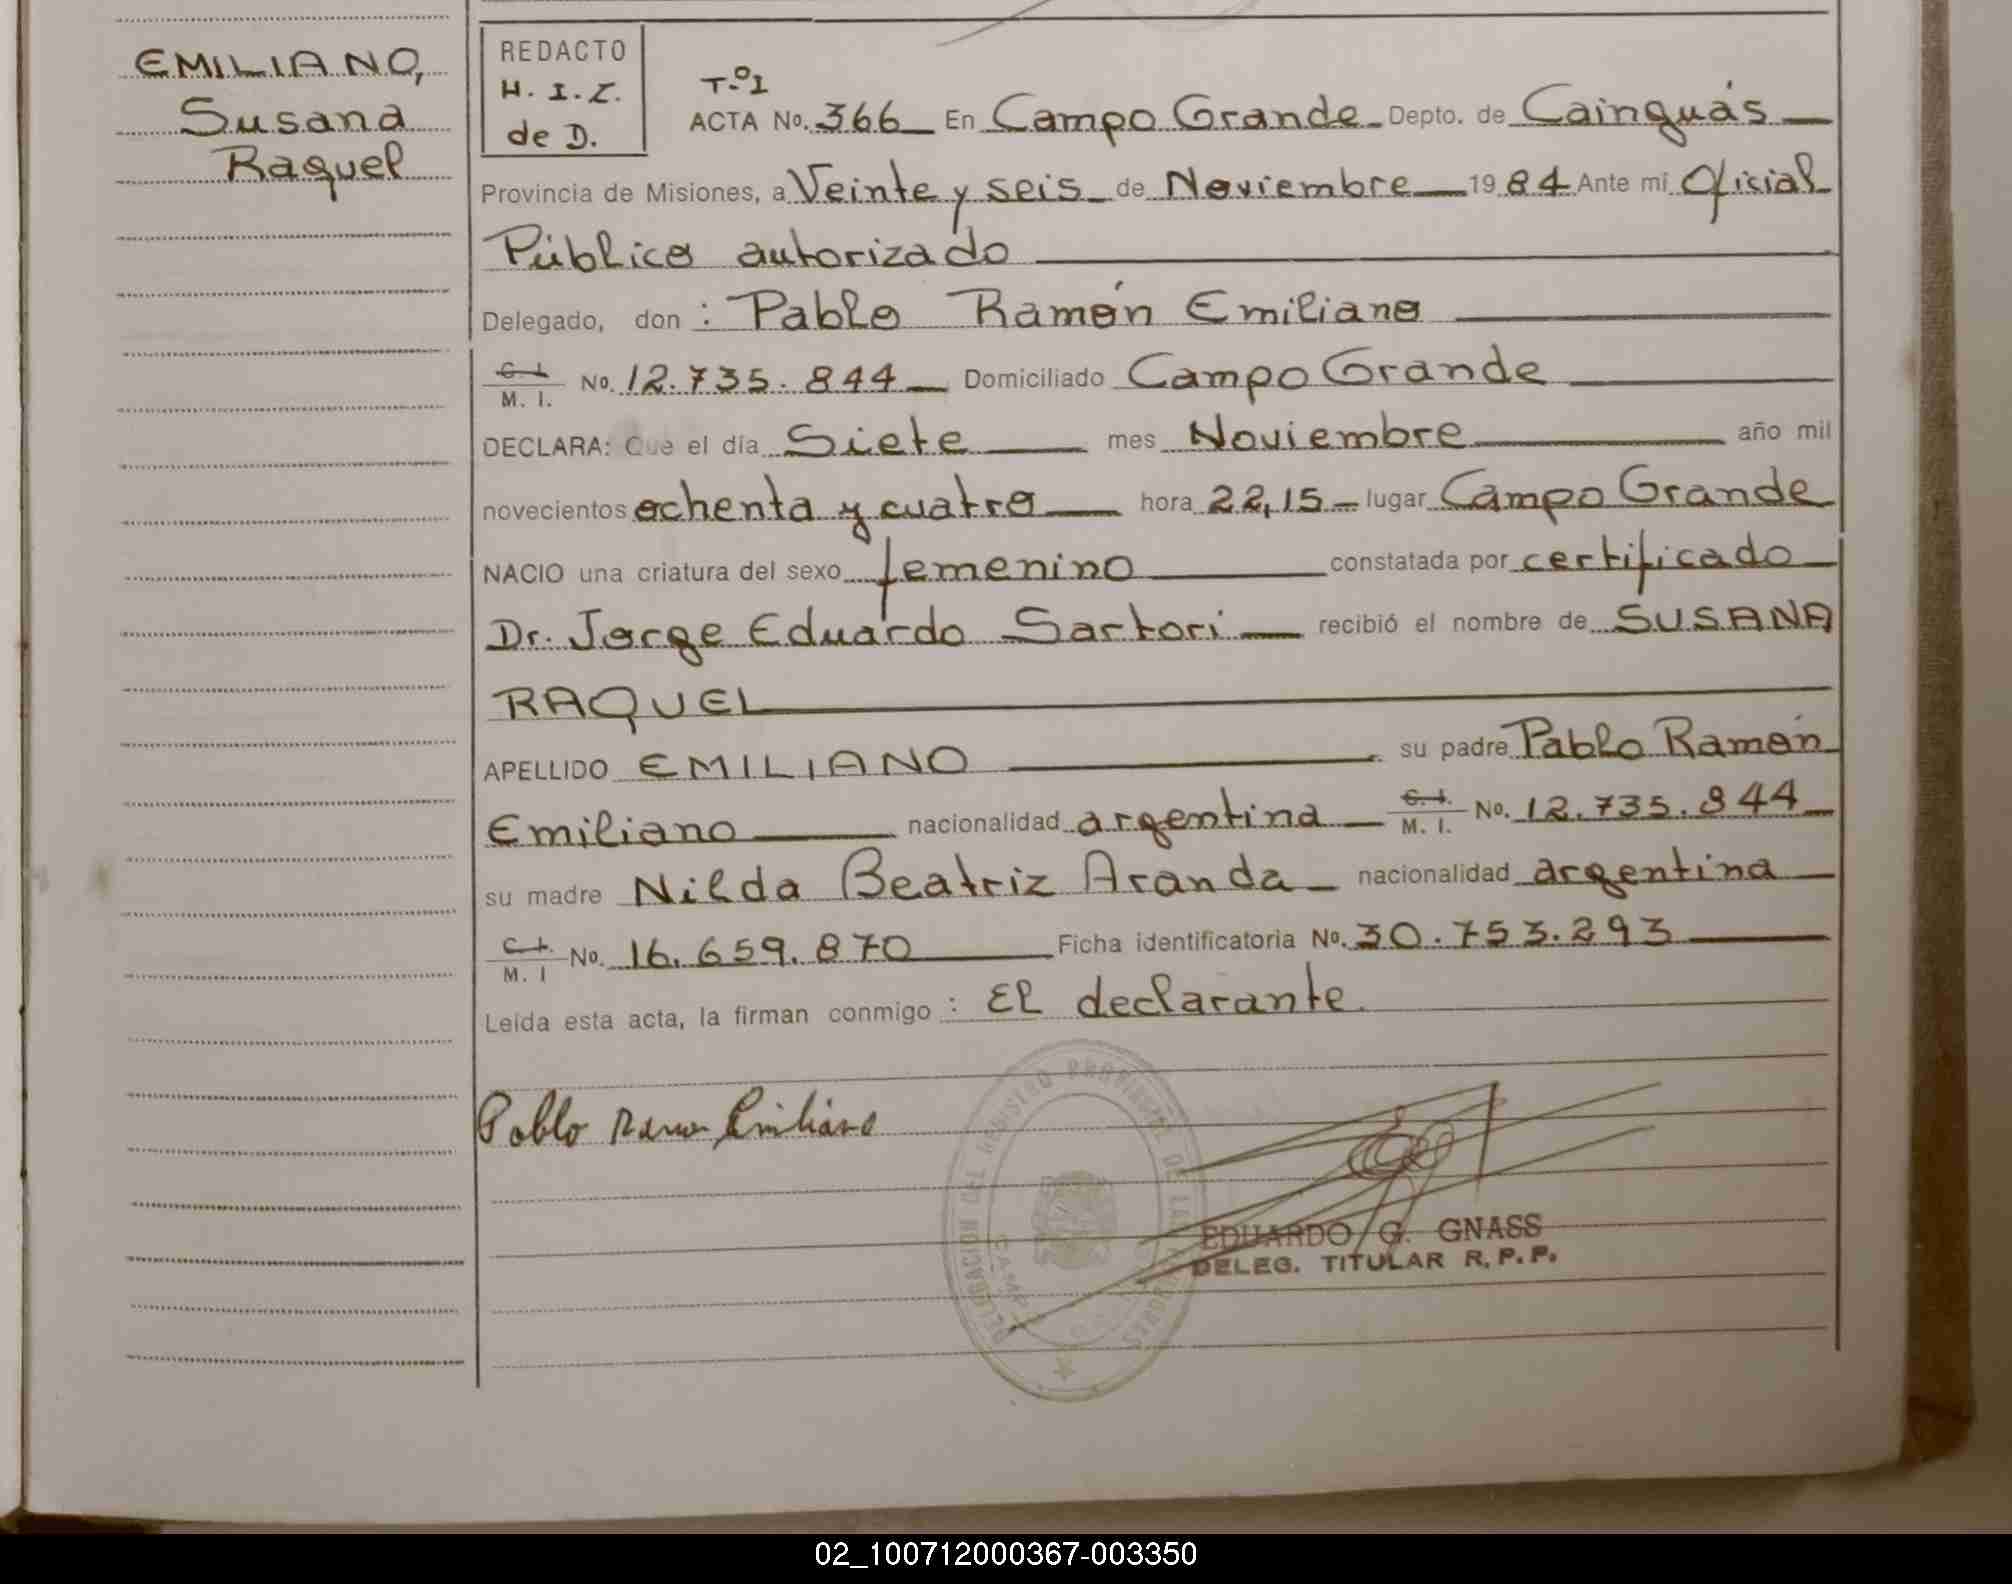 EMILIANO,
Susana
Raquel
REDACTO
H. I. Z.
de D.
T.º I
ACTA No. 366 En Campo Grande Depto. de Cainguás
Provincia de Misiones, a Veinte y seis de Noviembre 1984 Ante mi Oficial
Público autorizado
Delegado, don : Pablo Ramón Emiliano
C. I. / M. I. No. 12.735.844 Domiciliado Campo Grande
DECLARA: Que el día Siete mes Noviembre año mil
novecientos ochenta y cuatro hora 22,15 lugar Campo Grande
NACIO una criatura del sexo femenino constatada por certificado
Dr. Jorge Eduardo Sartori recibió el nombre de SUSANA
RAQUEL
APELLIDO EMILIANO su padre Pablo Ramón
Emiliano nacionalidad argentina C. I. / M. I. No. 12.735.844
su madre Nilda Beatriz Aranda nacionalidad argentina
C. I. / M. I No. 16.659.870 Ficha identificatoria No. 30.753.293
Leída esta acta, la firman conmigo : El declarante.
Pablo Ramon Emiliano
DELEGACION DEL REGISTRO PROVINCIAL DE LAS PERSONAS
EDUARDO G. GNASS
DELEG. TITULAR R. P. P.
02_100712000367-003350